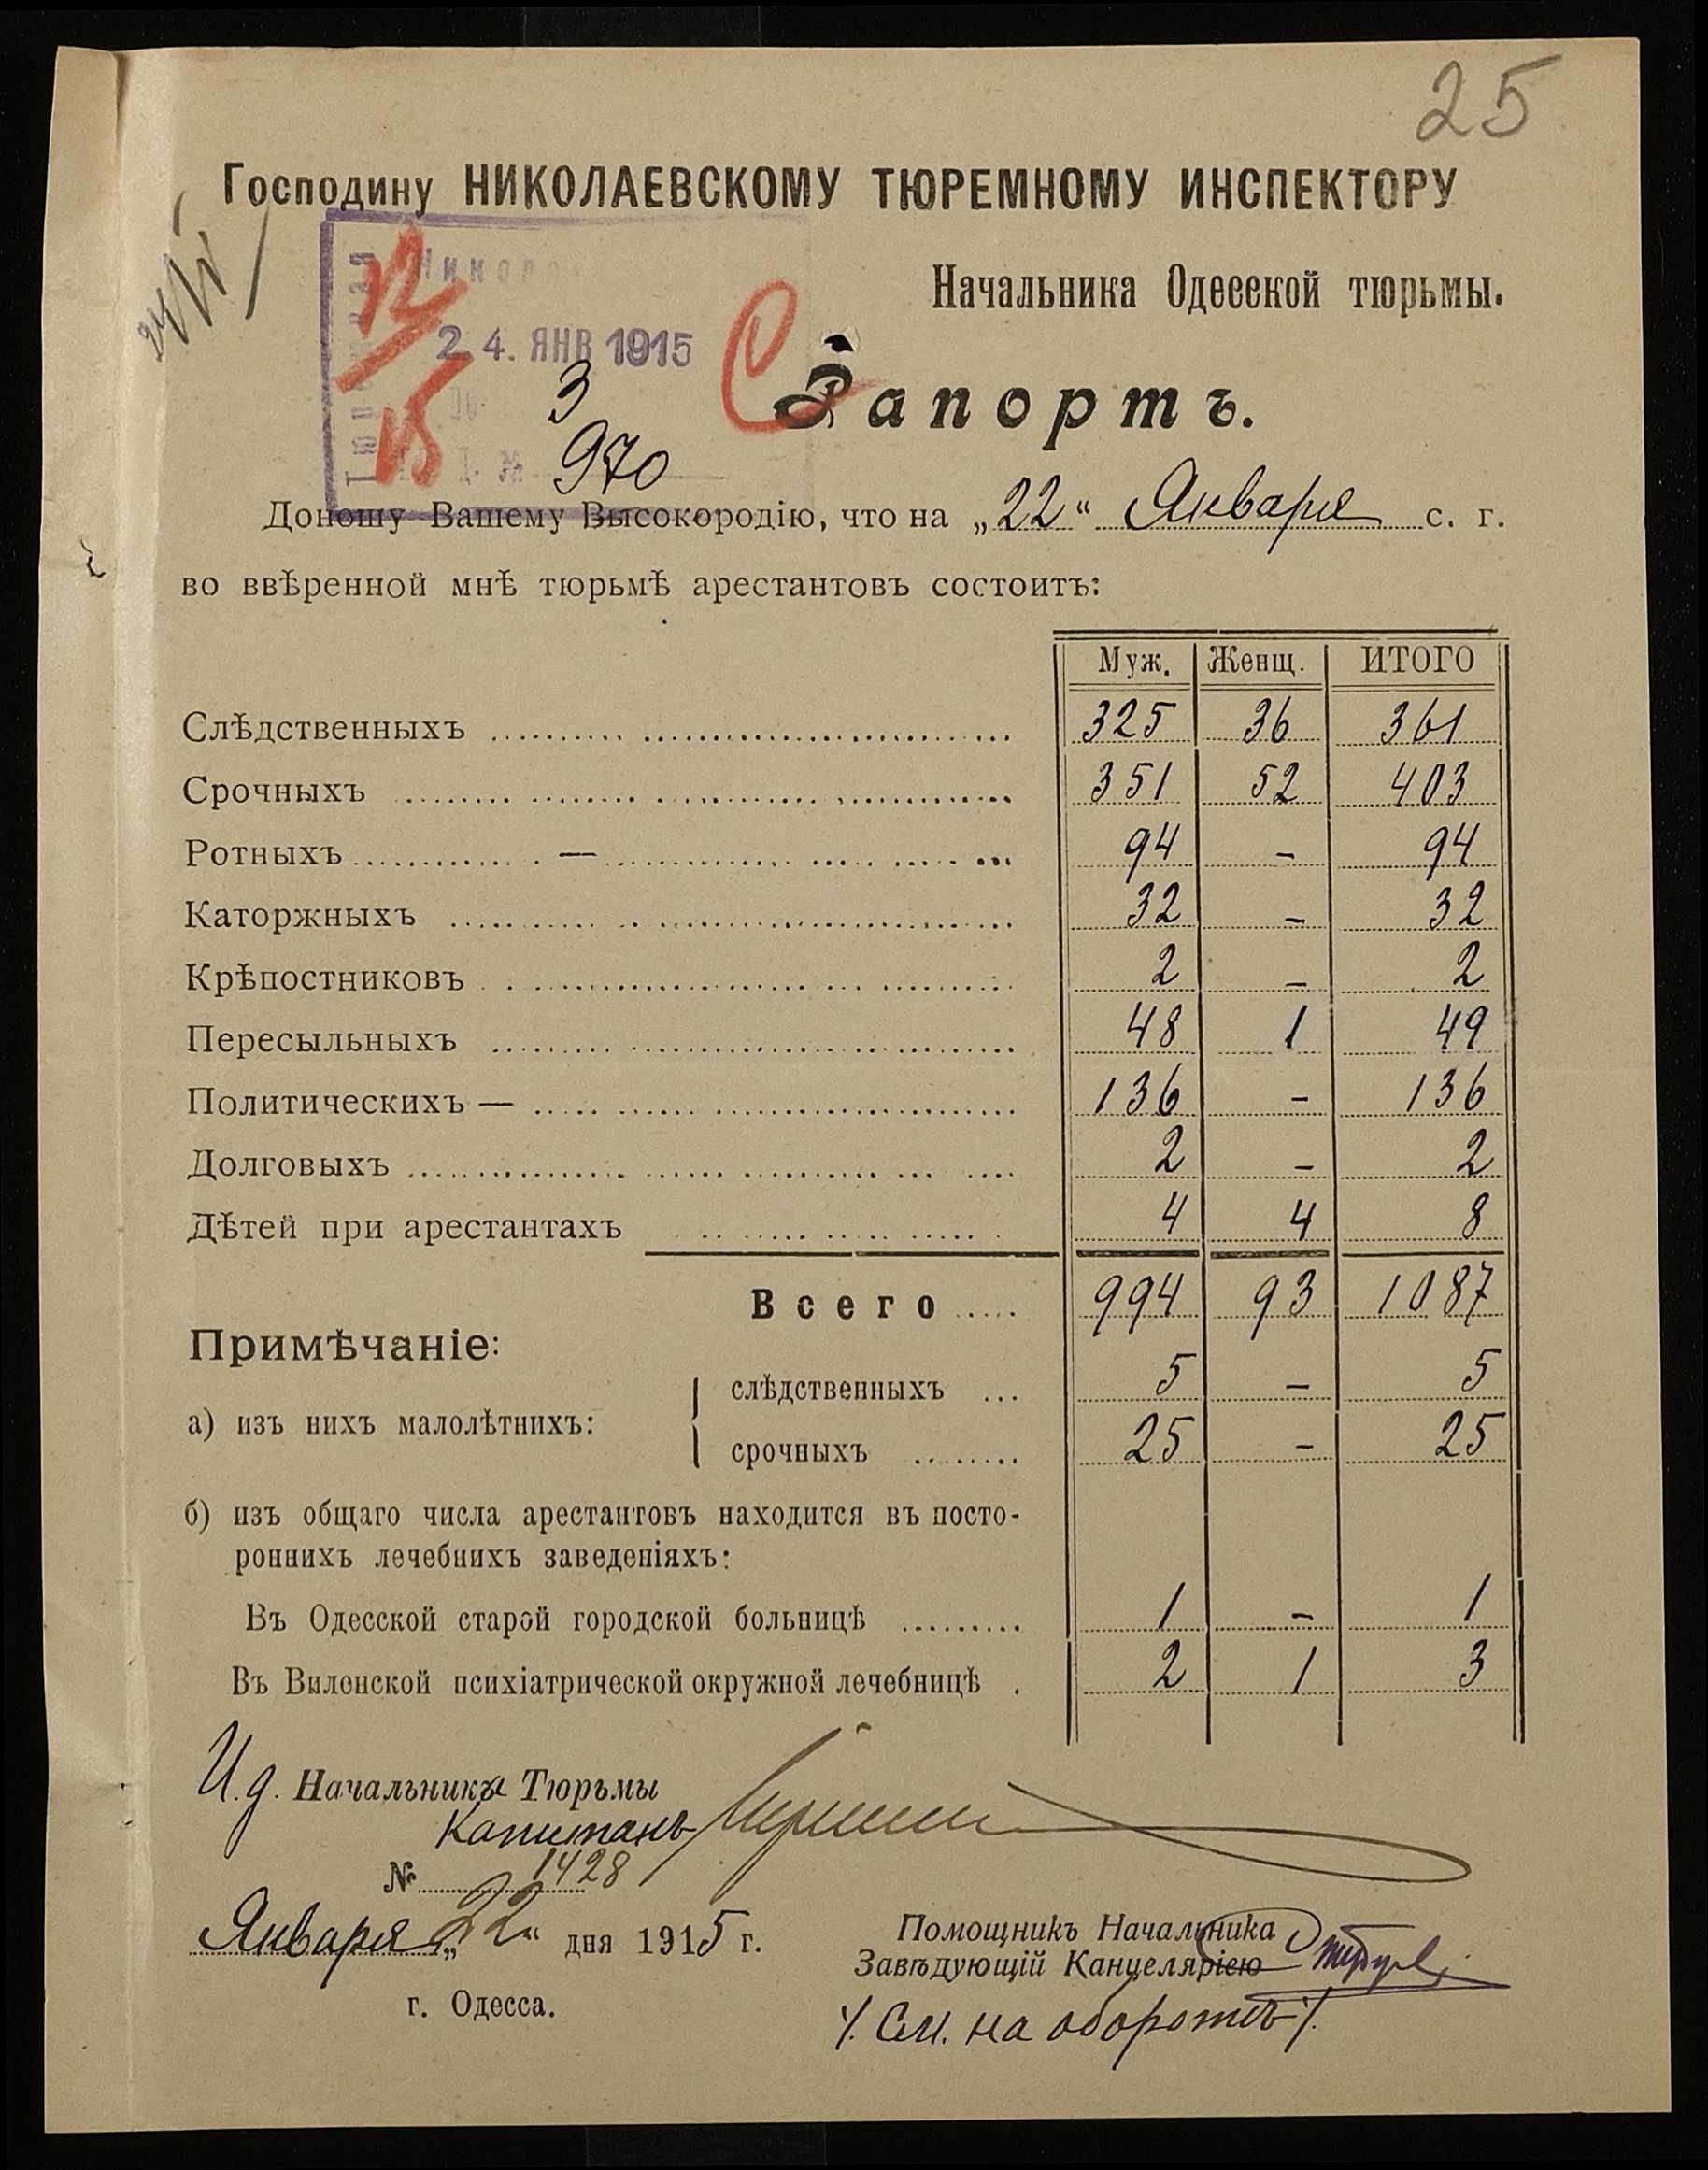 25
Господину НИКОЛАЕВСКОМУ ТЮРЕМНОМУ ИНСПЕКТОРУ
Начальника Одесской тюрьмы.
12
15
24. ЯНВ 1915
3
970
Рапортъ.
Доношу Вашему Высокородію, что на „22“ Января с. г.
во ввѣренной мнѣ тюрьмѣ арестантовъ состоитъ:
Муж. Женщ. ИТОГО
Слѣдственныхъ 325 36 361
Срочныхъ 351 52 403
Ротныхъ — 94 - 94
Каторжныхъ 32 - 32
Крѣпостниковъ 2 - 2
Пересыльныхъ 48 1 49
Политическихъ — 136 - 136
Долговыхъ 2 - 2
Дѣтей при арестантахъ 4 4 8
Всего 994 93 1087
Примѣчаніе:
а) изъ нихъ малолѣтнихъ:
слѣдственныхъ 5 - 5
срочныхъ 25 - 25
б) изъ общаго числа арестантовъ находится въ посто-
роннихъ лечебнихъ заведеніяхъ:
Въ Одесской старой городской больницѣ 1 - 1
Въ Виленской психіатрической окружной лечебницѣ 2 1 3
И.д. Начальника Тюрьмы
Капитанъ
№ 1428
Января „22“ дня 1915 г.
г. Одесса.
Помощникъ Начальника
Завѣдующій Канцеляріею
/. См. на оборотѣ /.